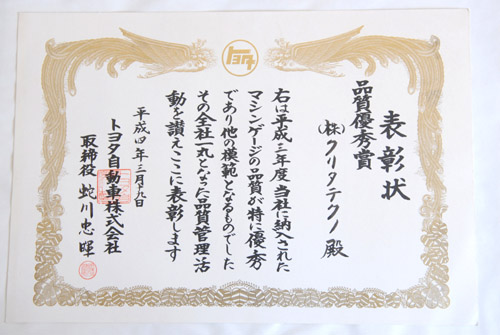 表彰状
品質優秀賞
(株)クリタテクノ 殿
右は平成三年度当社に納入された
マシンゲージの品質が特に優秀
であり他の模範となるものでした
その全社一丸となった品質管理活
動を讃えここに表彰します
平成四年三月 日
トヨタ自動車株式会社
取締役 蛇川忠暉